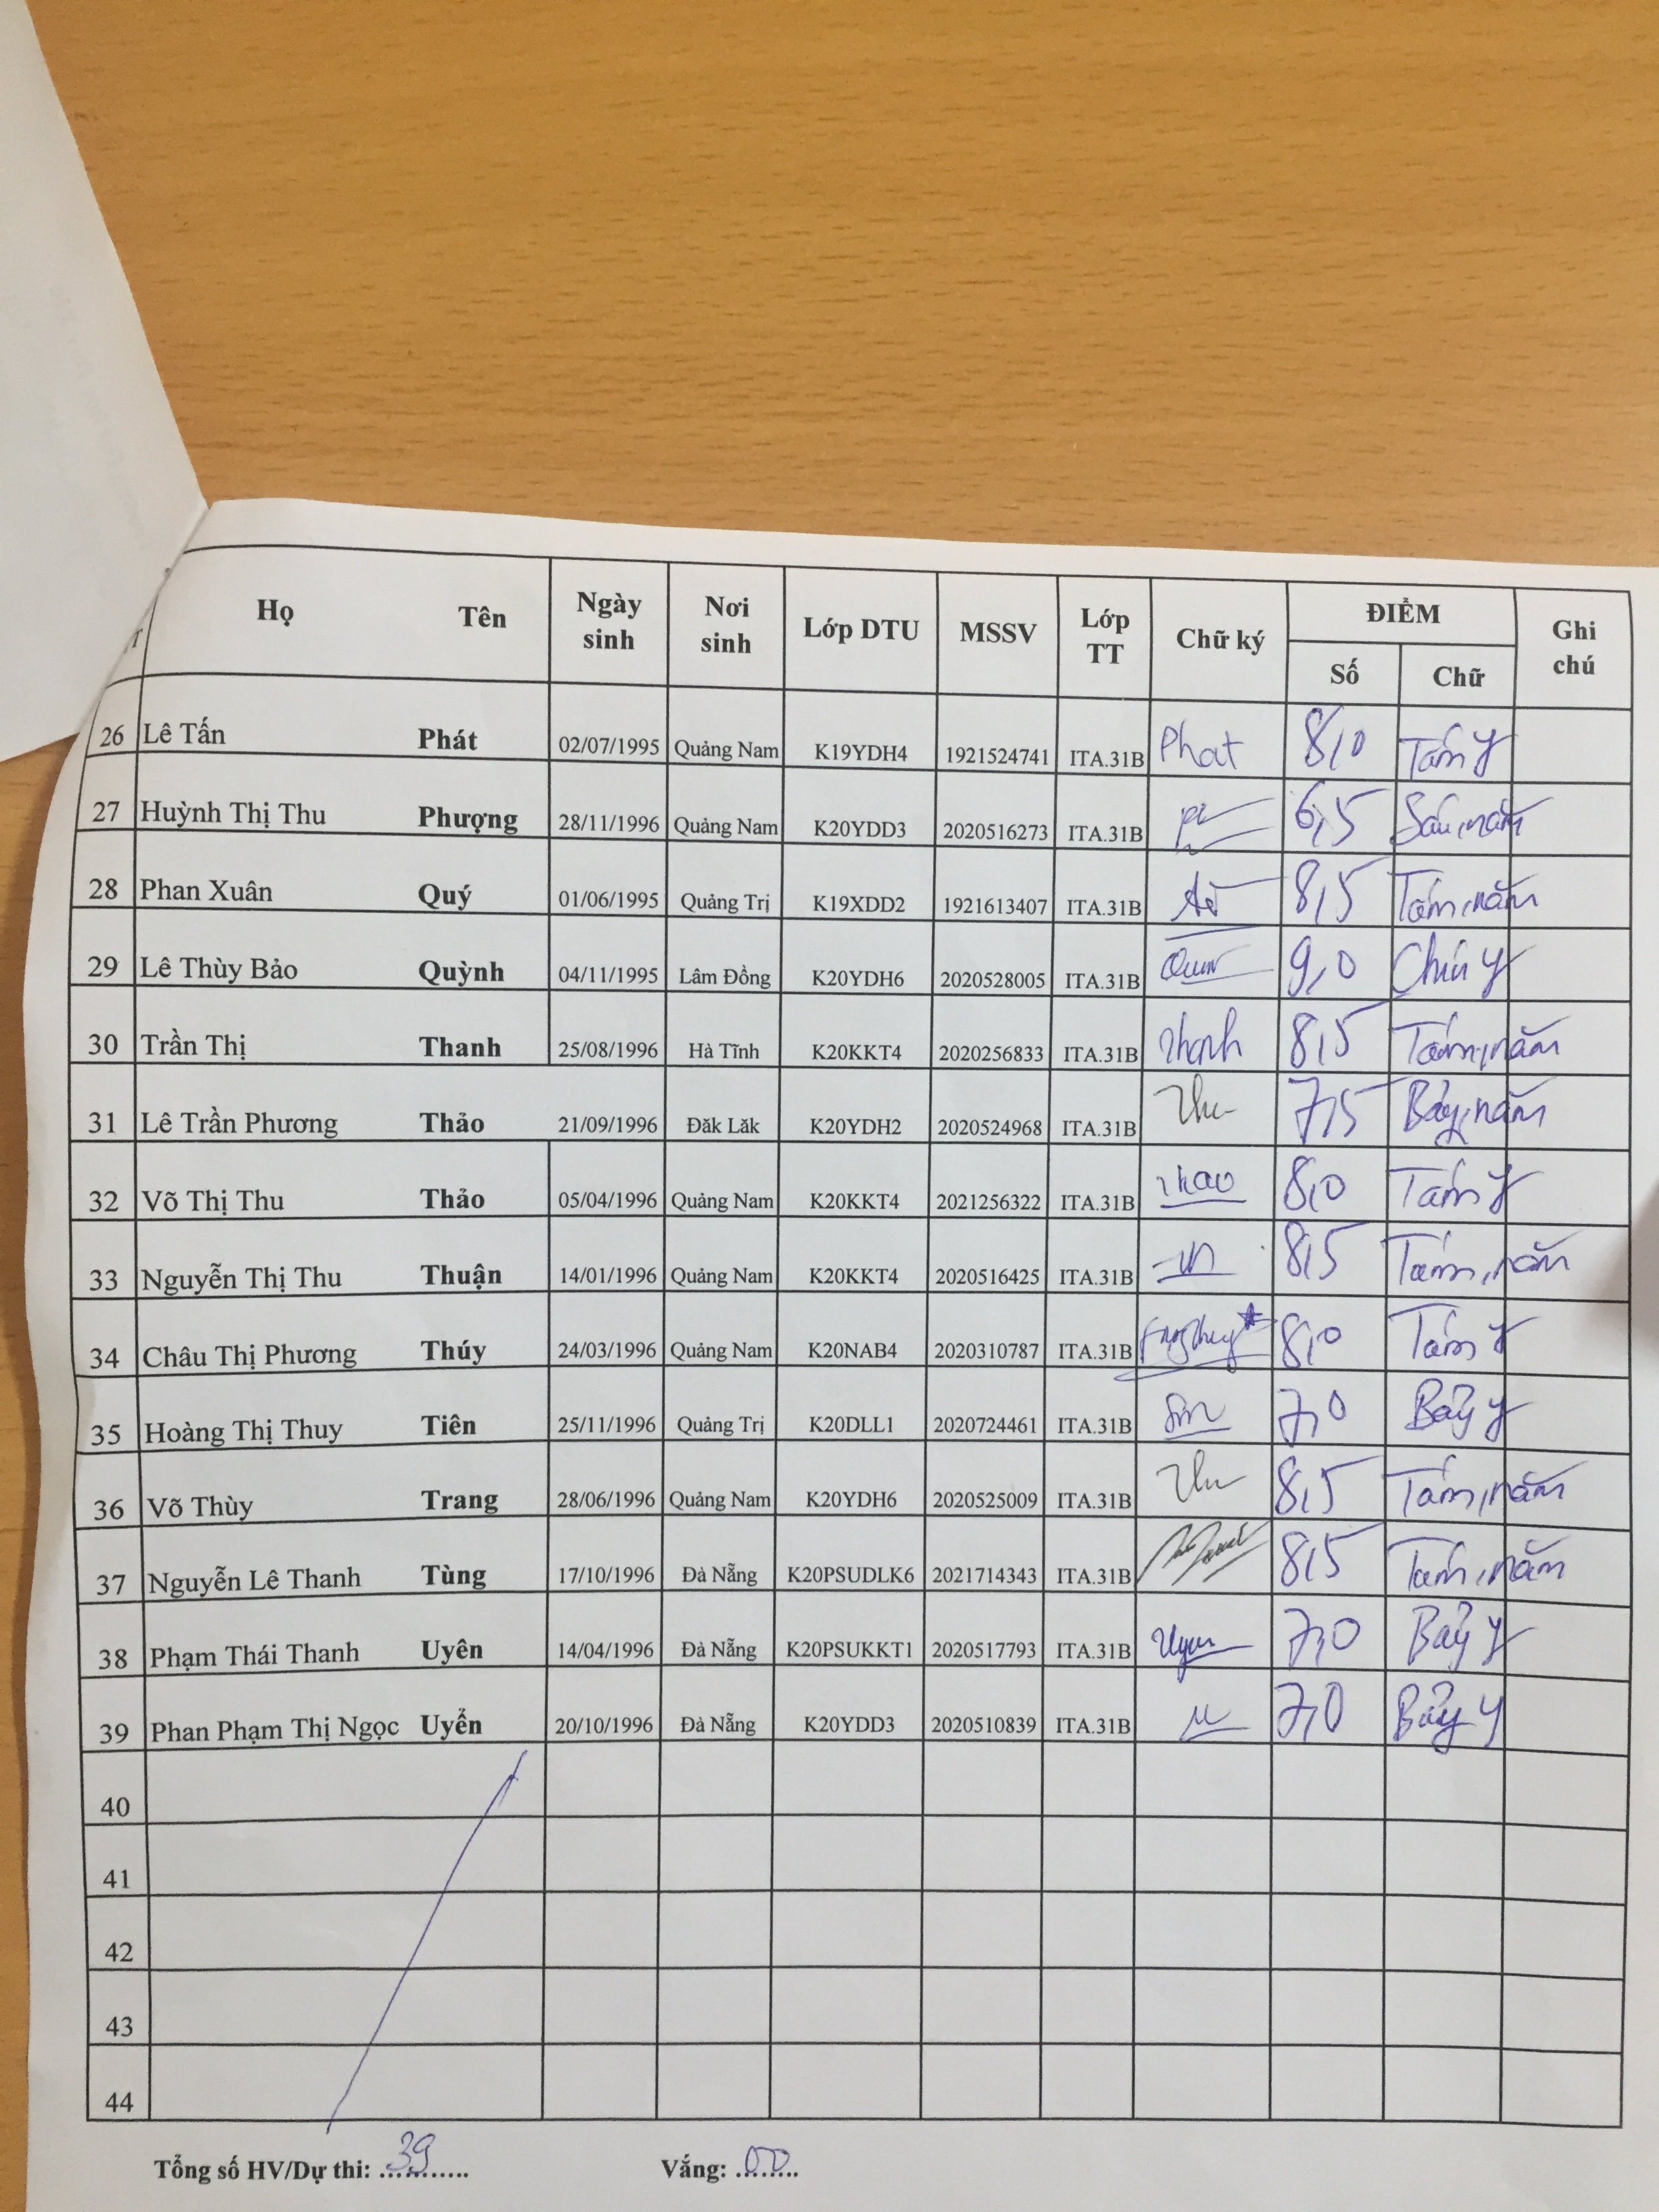 Họ Tên Ngày sinh Nơi sinh Lớp DTU MSSV Lớp TT Chữ ký ĐIỂM Số Chữ Ghi chú
26 Lê Tấn Phát 02/07/1995 Quảng Nam K19YDH4 1921524741 ITA.31B Phat 8,0 Tám y
27 Huỳnh Thị Thu Phượng 28/11/1996 Quảng Nam K20YDD3 2020516273 ITA.31B 6,5 Sáu, năm
28 Phan Xuân Quý 01/06/1995 Quảng Trị K19XDD2 1921613407 ITA.31B 8,5 Tám, năm
29 Lê Thùy Bảo Quỳnh 04/11/1995 Lâm Đồng K20YDH6 2020528005 ITA.31B 9,0 Chín y
30 Trần Thị Thanh 25/08/1996 Hà Tĩnh K20KKT4 2020256833 ITA.31B Thanh 8,5 Tám, năm
31 Lê Trần Phương Thảo 21/09/1996 Đăk Lăk K20YDH2 2020524968 ITA.31B 7,5 Bảy, năm
32 Võ Thị Thu Thảo 05/04/1996 Quảng Nam K20KKT4 2021256322 ITA.31B Thao 8,0 Tám y
33 Nguyễn Thị Thu Thuận 14/01/1996 Quảng Nam K20KKT4 2020516425 ITA.31B 8,5 Tám, năm
34 Châu Thị Phương Thúy 24/03/1996 Quảng Nam K20NAB4 2020310787 ITA.31B 8,0 Tám y
35 Hoàng Thị Thuy Tiên 25/11/1996 Quảng Trị K20DLL1 2020724461 ITA.31B 7,0 Bảy y
36 Võ Thùy Trang 28/06/1996 Quảng Nam K20YDH6 2020525009 ITA.31B 8,5 Tám, năm
37 Nguyễn Lê Thanh Tùng 17/10/1996 Đà Nẵng K20PSUDLK6 2021714343 ITA.31B 8,5 Tám, năm
38 Phạm Thái Thanh Uyên 14/04/1996 Đà Nẵng K20PSUKKT1 2020517793 ITA.31B Uyen 7,0 Bảy y
39 Phan Phạm Thị Ngọc Uyển 20/10/1996 Đà Nẵng K20YDD3 2020510839 ITA.31B 7,0 Bảy y
40
41
42
43
44
Tổng số HV/Dự thi: 39 Vắng: 00